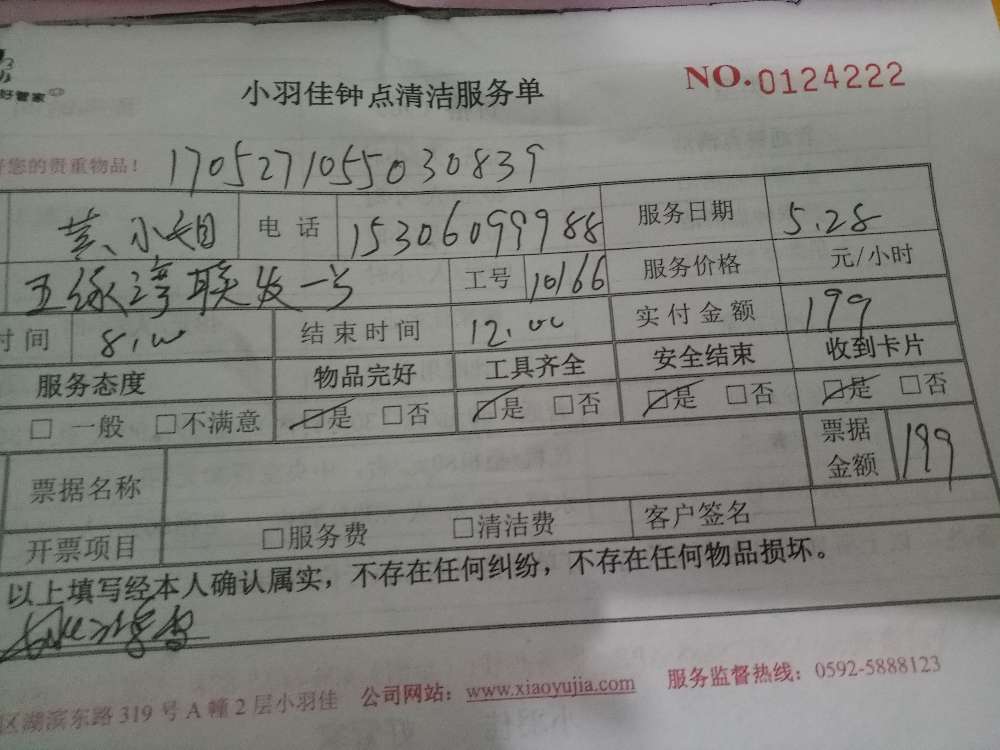 好管家
小羽佳钟点清洁服务单 NO.0124222
好您的贵重物品! 170527105503 0839
黄小姐 电话 15306099988 服务日期 5.28
五缘湾联发一号 工号 10166 服务价格 元/小时
时间 8:00 结束时间 12:00 实付金额 199
服务态度 物品完好 工具齐全 安全结束 收到卡片
□ 一般 □不满意 □是 □否 □是 □否 □是 □否 □是 □否
票据名称 票据金额 199
开票项目 □服务费 □清洁费 客户签名
以上填写经本人确认属实，不存在任何纠纷，不存在任何物品损坏。
区湖滨东路319号A幢2层小羽佳 公司网站：www.xiaoyujia.com 服务监督热线：0592-5888123